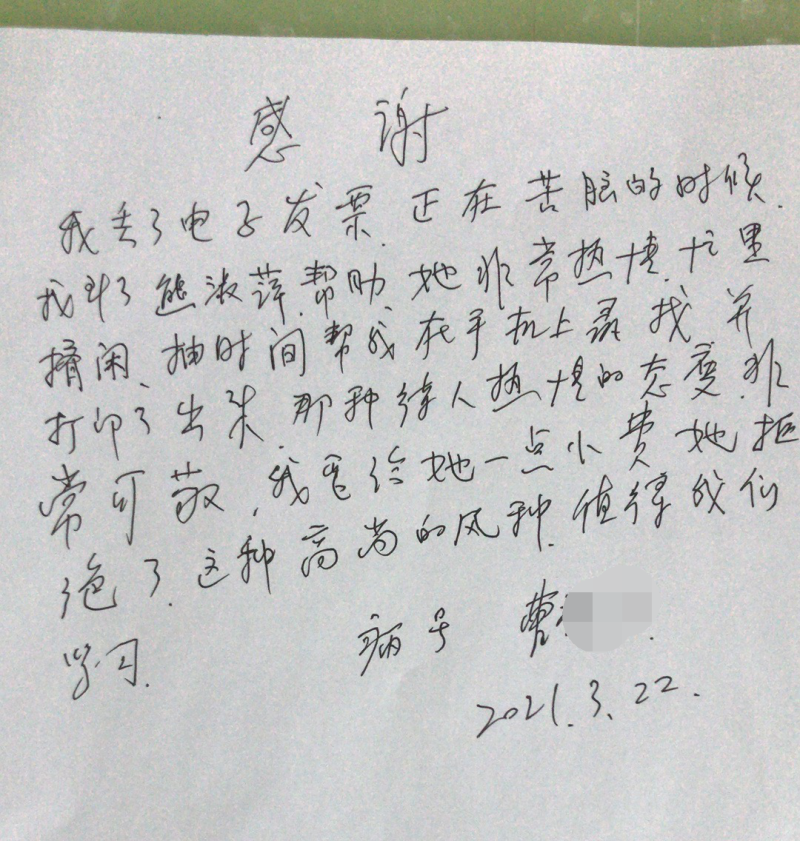 感谢
我丢了电子发票.正在苦脑的时候.
我到了熊淑萍.帮助她非常热情.忙里
摘闲、抽时间帮我在手机上寻找并
打印了出来.那种待人热情的态度.非
常可敬.我要给她一点小费她拒
绝了.这种高尚的风种.值得我们
学习.
病号 曹
2021.3.22.